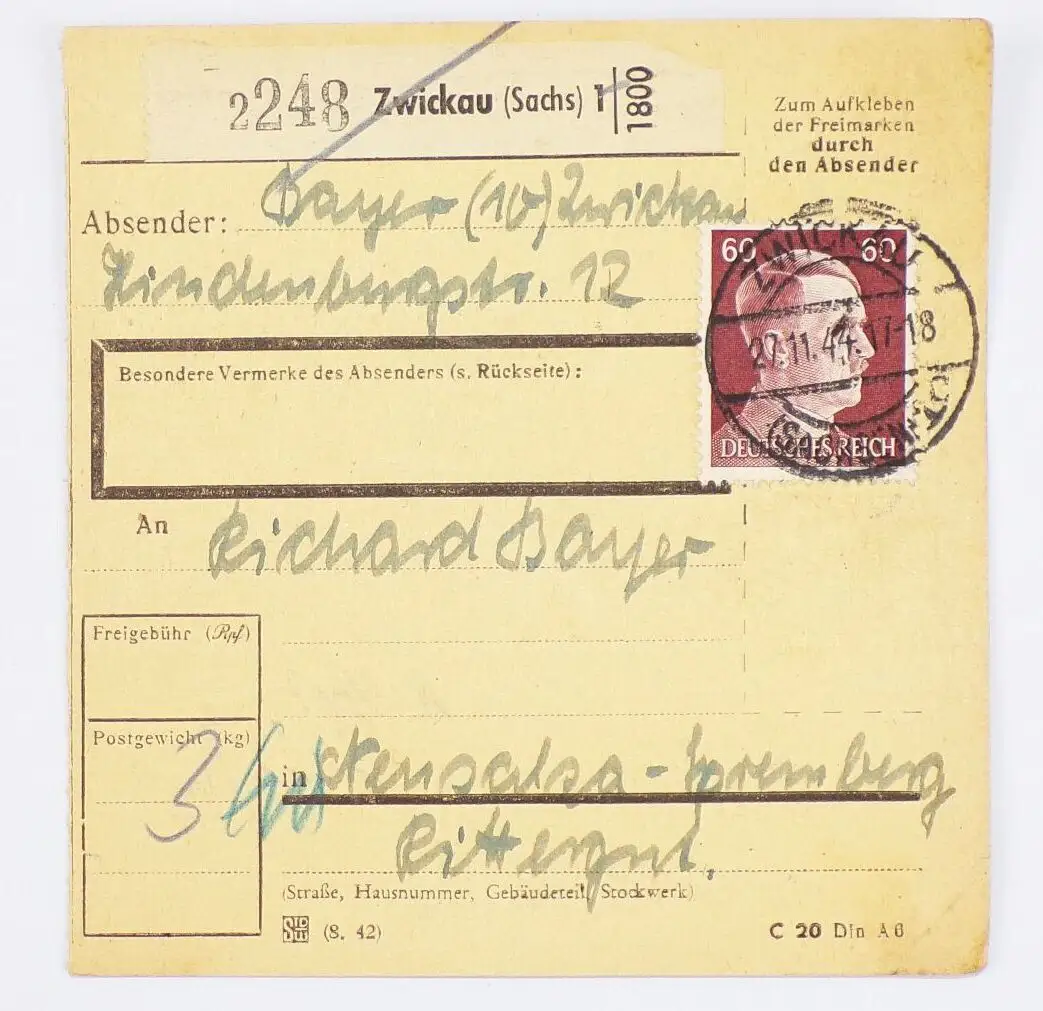 2248 Zwickau (Sachs) 1 1800
Zum Aufkleben
der Freimarken
durch
den Absender
Absender: Bayer (10) Zwickau
Hindenburgstr. 12
60 60
ZWICKAU
27.11.44.17-18
(SACHSEN)
DEUTSCHES REICH
Besondere Vermerke des Absenders (s. Rückseite):
An Richard Bayer
Freigebühr (Rpf)
Postgewicht (kg)
3
in Neusalza-Spremberg
Rittergut.
(Straße, Hausnummer, Gebäudeteil, Stockwerk)
(8. 42)
C 20 Din A6